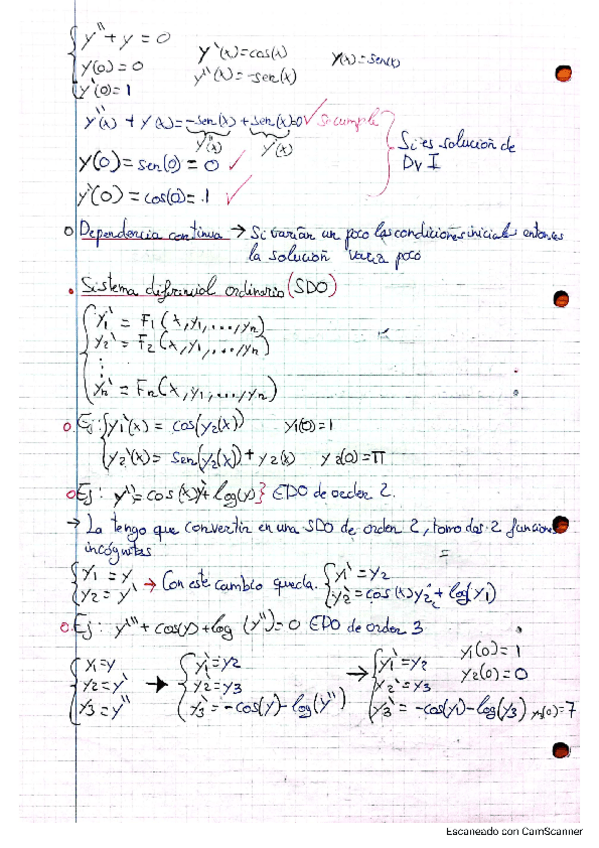 y'' + y = 0
y(0) = 0
y'(0) = 1
y'(x) = cos(x)
y''(x) = -sen(x)
y(x) = sen(x)
y''(x) + y(x) = -sen(x) + sen(x) = 0 ✓ Si cumple
y''(x) y(x)
y(0) = sen(0) = 0 ✓
y'(0) = cos(0) = 1 ✓
Si es solución de
DvI
Dependencia continua → Si varían un poco las condiciones iniciales entonces
la solución varía poco
Sistema diferencial ordinario (SDO)
y1' = F1(x, y1, ..., yn)
y2' = F2(x, y1, ..., yn)
⋮
yn' = Fn(x, y1, ..., yn)
Ej: y1'(x) = cos(y2(x)) y1(0) = 1
y2'(x) = sen(y2(x)) + y2(x) y2(0) = π
Ej: y'' = cos(x)y' + log(y) } EDO de orden 2.
→ La tengo que convertir en una SDO de orden 2, tomo dos 2 funciones
incógnitas =
y1 = y
y2 = y'
→ Con este cambio queda.
y1' = y2
y2' = cos(x) y2 + log(y1)
Ej: y''' + cos(y) + log(y'') = 0 EDO de orden 3
y1 = y
y2 = y'
y3 = y''
→
y1' = y2
y2' = y3
y3' = -cos(y) - log(y'')
→
y1' = y2
y2' = y3
y3' = -cos(y1) - log(y3)
y1(0) = 1
y2(0) = 0
y3(0) = 7
Escaneado con CamScanner